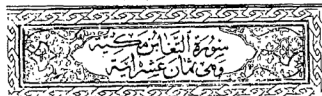 سورة التغابن مكية
وهي ثمان عشر اية